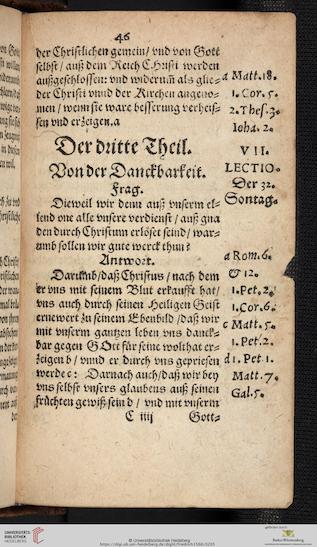 46
der Christlichen gemein/ vnd von Gott
selbst/ auß dem Reich Christi werden
außgeschlossen: vnd widerumb als glie=
der Christi vnnd der Kirchen angeno=
men/ wenn sie ware besserung verheis=
sen vnd erzeigen.a
a Matt.18.
1.Cor.5.
2.Thes.3.
Ioha.2.
Der dritte Theil.
Von der Danckbarkeit.
Frag.
VII.
LECTIO.
Der 32.
Sontag.
Dieweil wir denn auß vnserm el=
lend one alle vnsere verdienst/ auß gna
den durch Christum erlöset seind/ war=
umb sollen wir gute werck thun?
Antwort.
Darumb/daß Christus/ nach dem
er vns mit seinem Blut erkaufft hat/
vns auch durch seinen Heiligen Geist
ernewert zu seinem Ebenbild/daß wir
mit vnserm gantzen leben vns danck=
bar gegen Gott für seine wolthat er=
zeigen b/ vnnd er durch vns gepriesen
werde c: Darnach auch/daß wir bey
vns selbst vnsers glaubens auß seinen
früchten gewiß sein d/ vnd mit vnserm
a Rom.6.
& 12.
1.Pet.2.
1.Cor.6.
c Matt.5.
1.Pet.2.
d 1.Pet.1.
Matt.7.
Gal.5.
C iiij
Gott=
UNIVERSITÄTS-
BIBLIOTHEK
HEIDELBERG
© Universitätsbibliothek Heidelberg